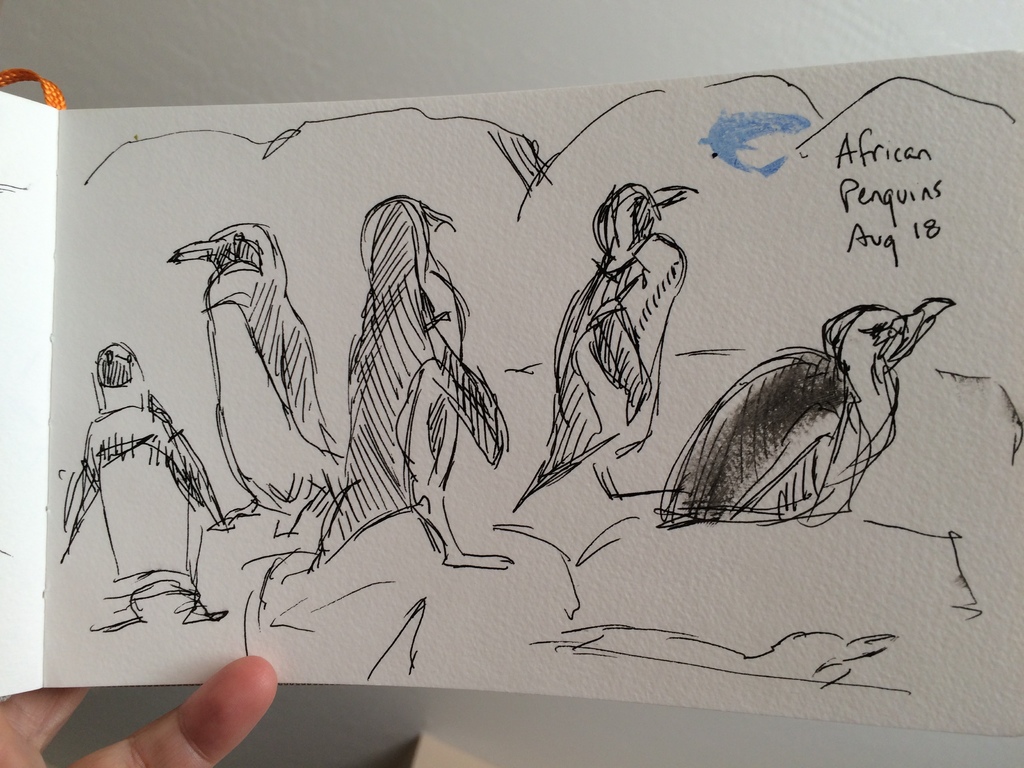 African
Penguins
Aug 18